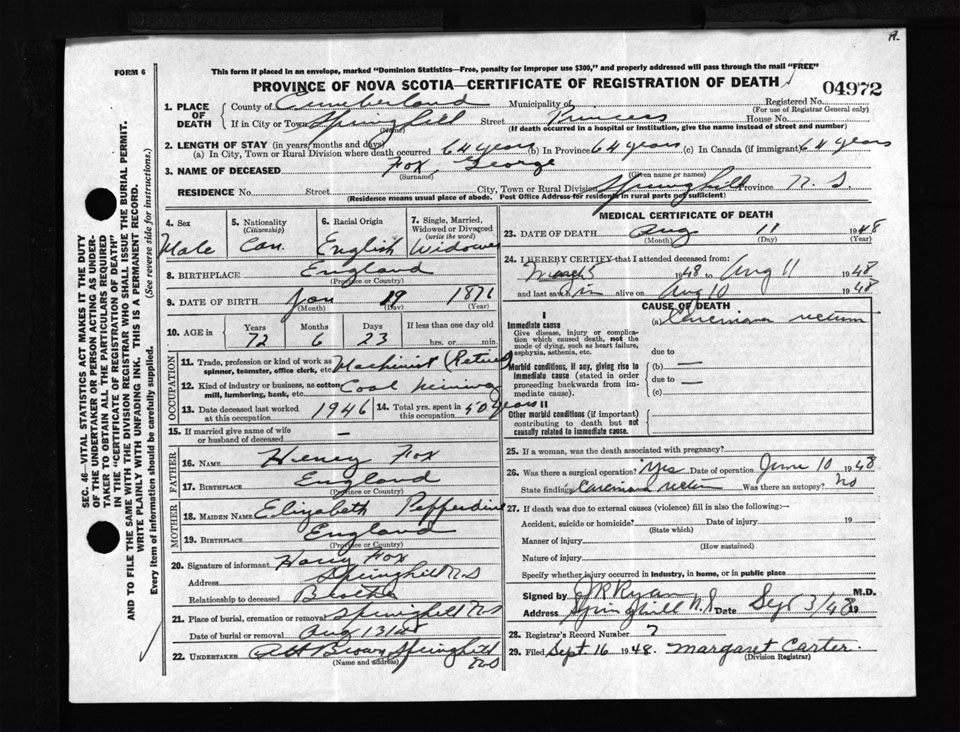 A.
FORM 6
This form if placed in an envelope, marked "Dominion Statistics—Free, penalty for improper use $300," and properly addressed will pass through the mail "FREE"
PROVINCE OF NOVA SCOTIA—CERTIFICATE OF REGISTRATION OF DEATH
04972
1. PLACE OF DEATH
County of Cumberland Municipality of Registered No.
(For use of Registrar General only)
If in City or Town Springhill Street Princess House No.
(Name) (If death occurred in a hospital or institution, give the name instead of street and number)
2. LENGTH OF STAY (in years, months and days)
(a) In City, Town or Rural Division where death occurred 64 years (b) In Province 64 years (c) In Canada (if immigrant) 64 years
3. NAME OF DECEASED Fox, George
(Surname) (Given name or names)
RESIDENCE No. Street City, Town or Rural Division Springhill Province N.S.
(Residence means usual place of abode. Post Office Address for residents in rural parts not sufficient)
4. Sex
Male
5. Nationality
(Citizenship)
Can.
6. Racial Origin
English
7. Single, Married, Widowed or Divorced
(write the word)
Widower
8. BIRTHPLACE England
(Province or Country)
9. DATE OF BIRTH Jan 19 1876
(Month) (Day) (Year)
10. AGE in Years Months Days If less than one day old
72 6 23 hrs. or min.
OCCUPATION
11. Trade, profession or kind of work as spinner, teamster, office clerk, etc. Machinist (Retired)
12. Kind of industry or business, as cotton mill, lumbering, bank, etc. Coal Mining
13. Date deceased last worked at this occupation 1946
14. Total yrs. spent in this occupation 50 years
15. If married give name of wife or husband of deceased —
FATHER
16. NAME Henry Fox
17. BIRTHPLACE England
(Province or Country)
MOTHER
18. MAIDEN NAME Elizabeth Pepperdine
19. BIRTHPLACE England
(Province or Country)
20. Signature of informant Harry Fox
Address Springhill N.S
Relationship to deceased Brother
21. Place of burial, cremation or removal Springhill N.S
Date of burial or removal Aug 13/48
22. UNDERTAKER Brown Springhill
(Name and address) N.S
MEDICAL CERTIFICATE OF DEATH
23. DATE OF DEATH Aug 11 1948
(Month) (Day) (Year)
24. I HEREBY CERTIFY that I attended deceased from:
1948 to Aug 11 1948
and last saw him alive on Aug 10 1948
CAUSE OF DEATH
I
Immediate cause
Give disease, injury or complication which caused death, not the mode of dying, such as heart failure, asphyxia, asthenia, etc.
(a) Carcinoma rectum
due to
Morbid conditions, if any, giving rise to immediate cause (stated in order proceeding backwards from immediate cause).
(b) —
due to —
(c)
II
Other morbid conditions (if important) contributing to death but not causally related to immediate cause.
25. If a woman, was the death associated with pregnancy?
26. Was there a surgical operation? Yes Date of operation June 10 1948
State findings Carcinoma rectum Was there an autopsy? No
27. If death was due to external causes (violence) fill in also the following:—
Accident, suicide or homicide? Date of injury 19
(State which)
Manner of injury
(How sustained)
Nature of injury
Specify whether injury occurred in industry, in home, or in public place
Signed by J R Ryan M.D.
Address Springhill N.S Date Sept 3/48 19
28. Registrar's Record Number 7
29. Filed Sept. 16 1948. Margaret Carter.
(Division Registrar)
SEC. 46—VITAL STATISTICS ACT MAKES IT THE DUTY
OF THE UNDERTAKER OR PERSON ACTING AS UNDER-
TAKER TO OBTAIN ALL THE PARTICULARS REQUIRED
IN THE "CERTIFICATE OF REGISTRATION OF DEATH"
AND TO FILE THE SAME WITH THE DIVISION REGISTRAR WHO SHALL ISSUE THE BURIAL PERMIT.
WRITE PLAINLY WITH UNFADING INK. THIS IS A PERMANENT RECORD.
Every item of information should be carefully supplied. (See reverse side for instructions.)